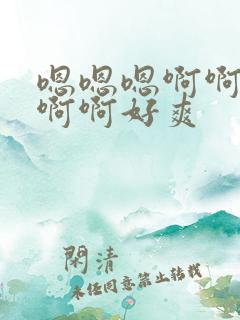 嗯嗯嗯啊啊
啊啊好爽
閑清
未经同意禁止转载